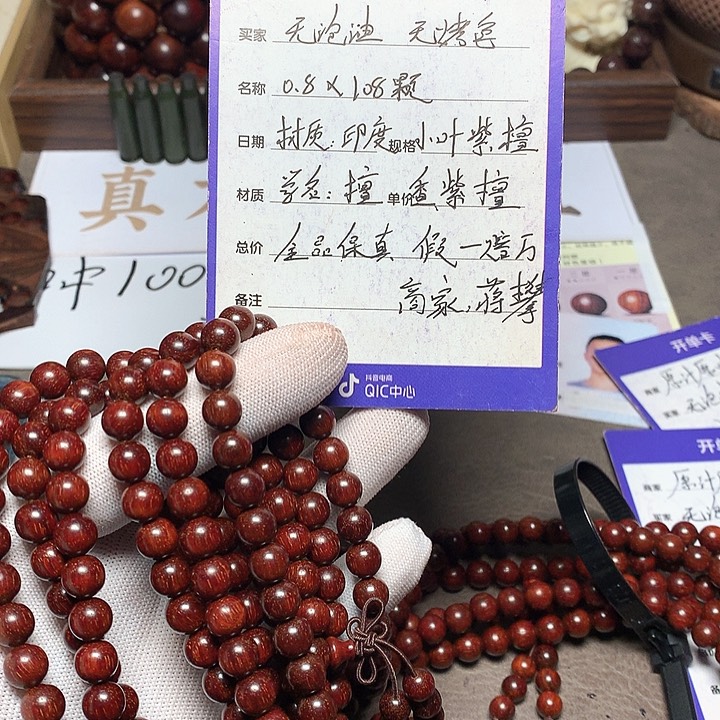 买家 无泡油 无烤色
名称 0.8×108颗
日期 材质:印度 规格 小叶紫檀
材质 学名:檀 单价 香紫檀
总价 全品保真 假一赔万
备注 商家,蒋攀
抖音电商
QIC中心
真
中100
开单卡
原汁原
无泡
开单
原汁
无泡